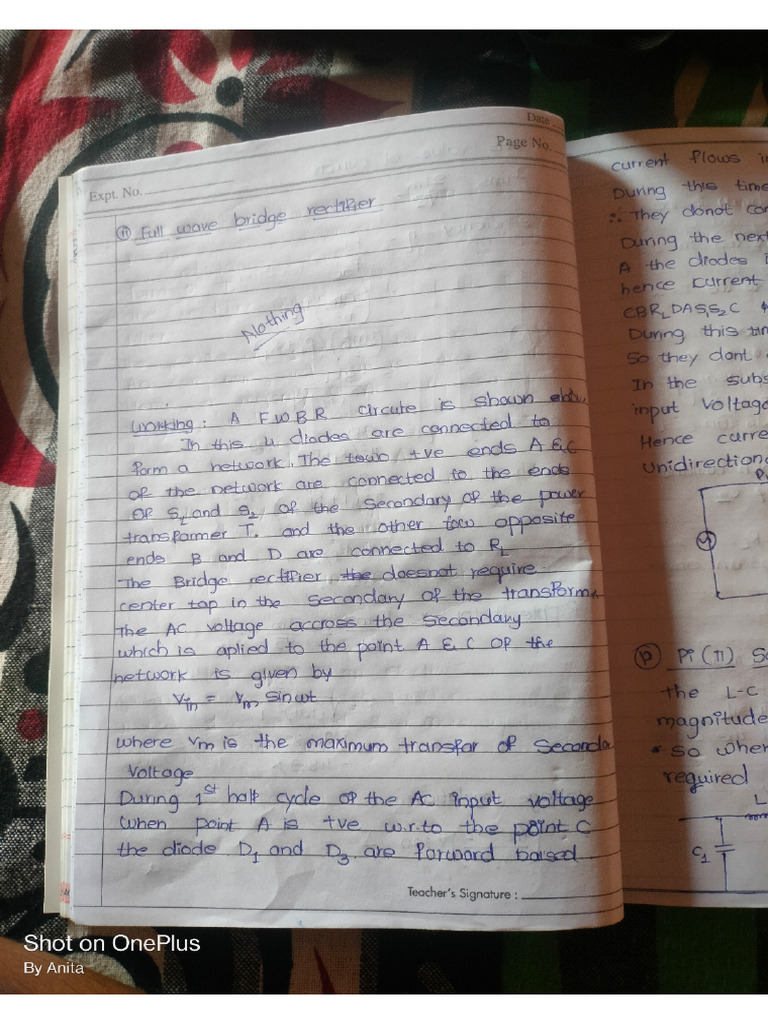 Date
Page No.
Expt. No.
(n) Full wave bridge rectifier
Nothing
working : A F W B R circute is shown
In this 4 diodes are connected to
form a network. The +ve ends A & C
of the network are connected to the ends
of S1 and S2 of the secondary of the power
transformer T. and the other tow opposite
ends B and D are connected to RL
The Bridge rectifier the doesnot require
center tap in the secondary of the transform
The AC voltage accross the secondary
which is aplied to the point A & C of the
network is given by
Vin = Vm sin wt
where Vm is the maximum transfar of seconda
voltage
During 1st half cycle of the AC input voltage
when point A is +ve w.r.to the point C
the diode D1 and D3 are forward baised
Teacher's Signature :
current flows in
During this time
∴ They donot con
During the next
A the diodes
hence current
CBRLDAS1S2C
During this tim
So they dont
In the subs
input voltage
Hence curre
Unidirection
(P) Pi (π) S
the L-C
magnitude
* so when
required
L
C1
Shot on OnePlus
By Anita